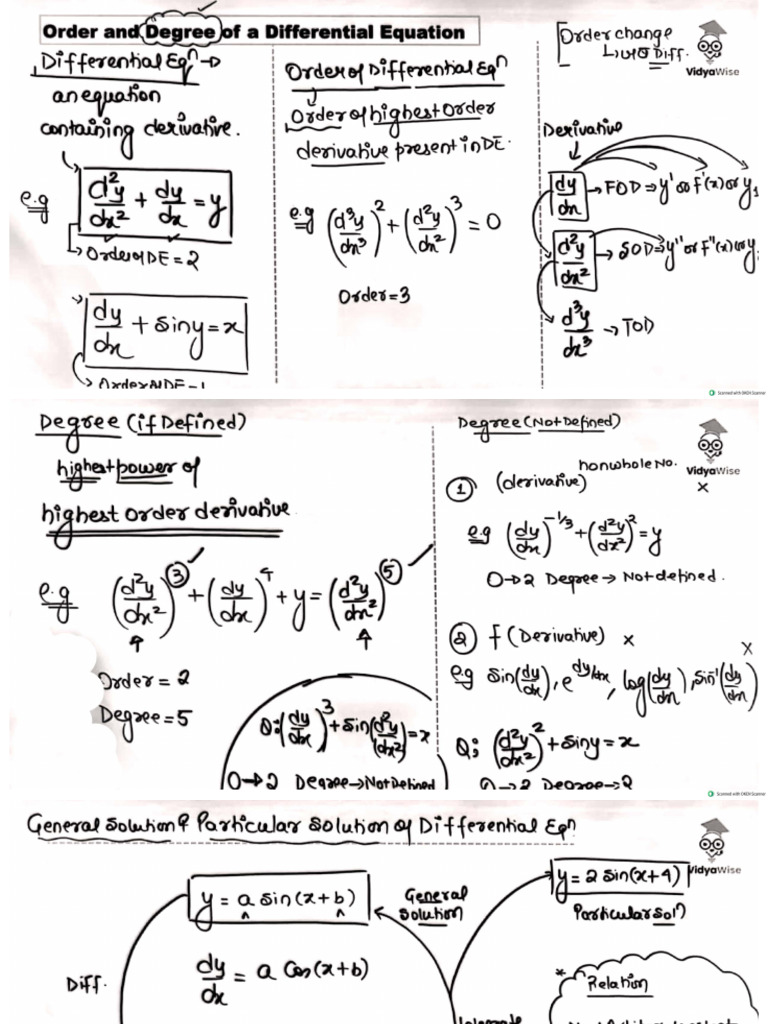 Order and Degree of a Differential Equation
Differential Eqⁿ →
an equation
containing derivative.
e.g d²y/dx² + dy/dx = y
↳ Order of DE = 2
dy/dx + siny = x
↳ Order of DE = 1
Order of Differential Eqⁿ
Order of highest Order
derivative present in DE.
e.g (d³y/dx³)² + (d²y/dx²)³ = 0
Order = 3
Order change
Diff.
VidyaWise
Derivative
dy/dx → FOD ⇒ y' or f'(x) or y₁
d²y/dx² → SOD ⇒ y'' or f''(x) or y
d³y/dx³ → TOD
Scanned with OKEN Scanner
Degree (if Defined)
highest power of
highest order derivative
e.g (d²y/dx²)³ + (dy/dx)⁴ + y = (d²y/dx²)⁵
Order = 2
Degree = 5
Q: (dy/dx)³ + sin(d²y/dx²) = x
O → 2 Degree → Not Defined
Degree (Not Defined)
VidyaWise
① (derivative) nonwhole No. ×
e.g (dy/dx)^-1/3 + (d²y/dx²)² = y
O → 2 Degree → Not defined.
② f (Derivative) ×
eg sin(dy/dx), e^dy/dx, log(dy/dx), sin⁻¹(dy/dx) ×
Q: (d²y/dx²)² + siny = x
O → 2 Degree → 2
Scanned with OKEN Scanner
General Solution & Particular Solution of Differential Eqⁿ
VidyaWise
y = a sin(x+b)
General
Solution
y = 2 sin(x+4)
Particular Solⁿ
Diff.
dy/dx = a Cos(x+b)
* Relation
Integrate